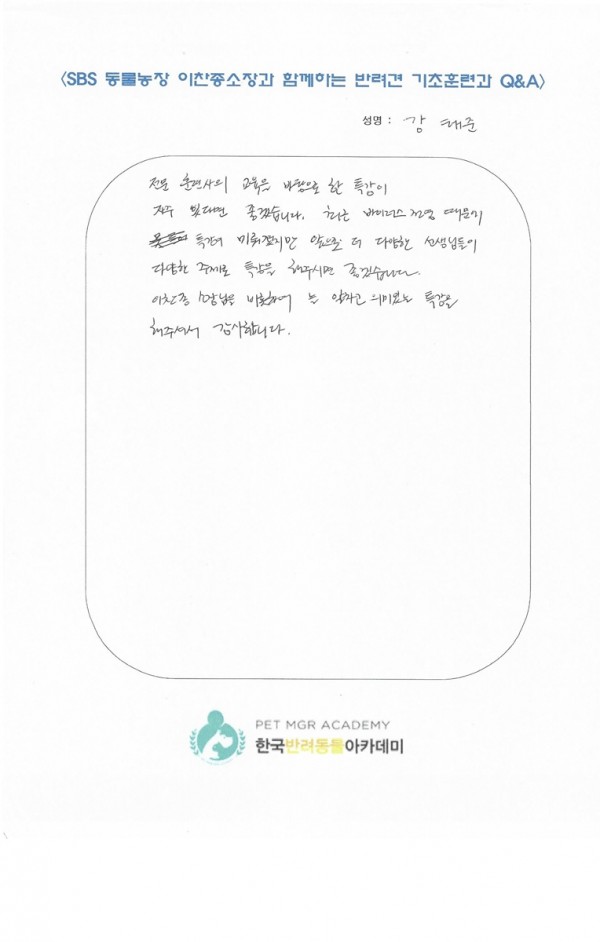 <SBS 동물농장 이찬종소장과 함께하는 반려견 기초훈련과 Q&A>
성명 : 강 태준
전문 훈련사의 교육을 바탕으로 한 특강이
자주 있다면 좋겠습니다. 최근 바이러스 전염 때문에
특강이 미뤄졌지만 앞으로 더 다양한 선생님들이
다양한 주제로 특강을 해주시면 좋겠습니다.
이찬종 소장님을 비롯하여 는 알차고 의미있는 특강을
해주셔서 감사합니다.
PET MGR ACADEMY
한국반려동물아카데미